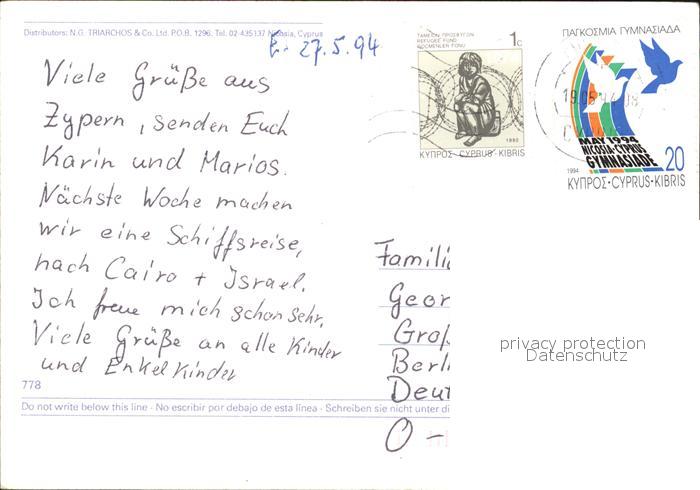 Distributors: N.G. TRIARCHOS & Co. Ltd. P.O.B. 1296. Tel. 02-435137 Nicosia, Cyprus
E. 27.5.94
ΤΑΜΕΙΟΝ ΠΡΟΣΦΥΓΩΝ
REFUGEE FUND
GÖÇMENLER FONU
1c
ΚΥΠΡΟΣ CYPRUS KIBRIS
ΠΑΓΚΟΣΜΙΑ ΓΥΜΝΑΣΙΑΔΑ
19.05.94
MAY 1994
NICOSIA-CYPRUS
GYMNASIADE
20
1994
ΚΥΠΡΟΣ·CYPRUS·KIBRIS
Viele Grüße aus
Zypern, senden Euch
Karin und Marios.
Nächste Woche machen
wir eine Schiffsreise,
nach Cairo + Israel.
Ich freue mich schon sehr.
Viele Grüße an alle Kinder
und Enkelkinder
Famili
Geor
Groß
Berl
Deut
O -
778
Do not write below this line - No escribir por debajo de esta línea - Schreiben sie nicht unter di
privacy protection
Datenschutz